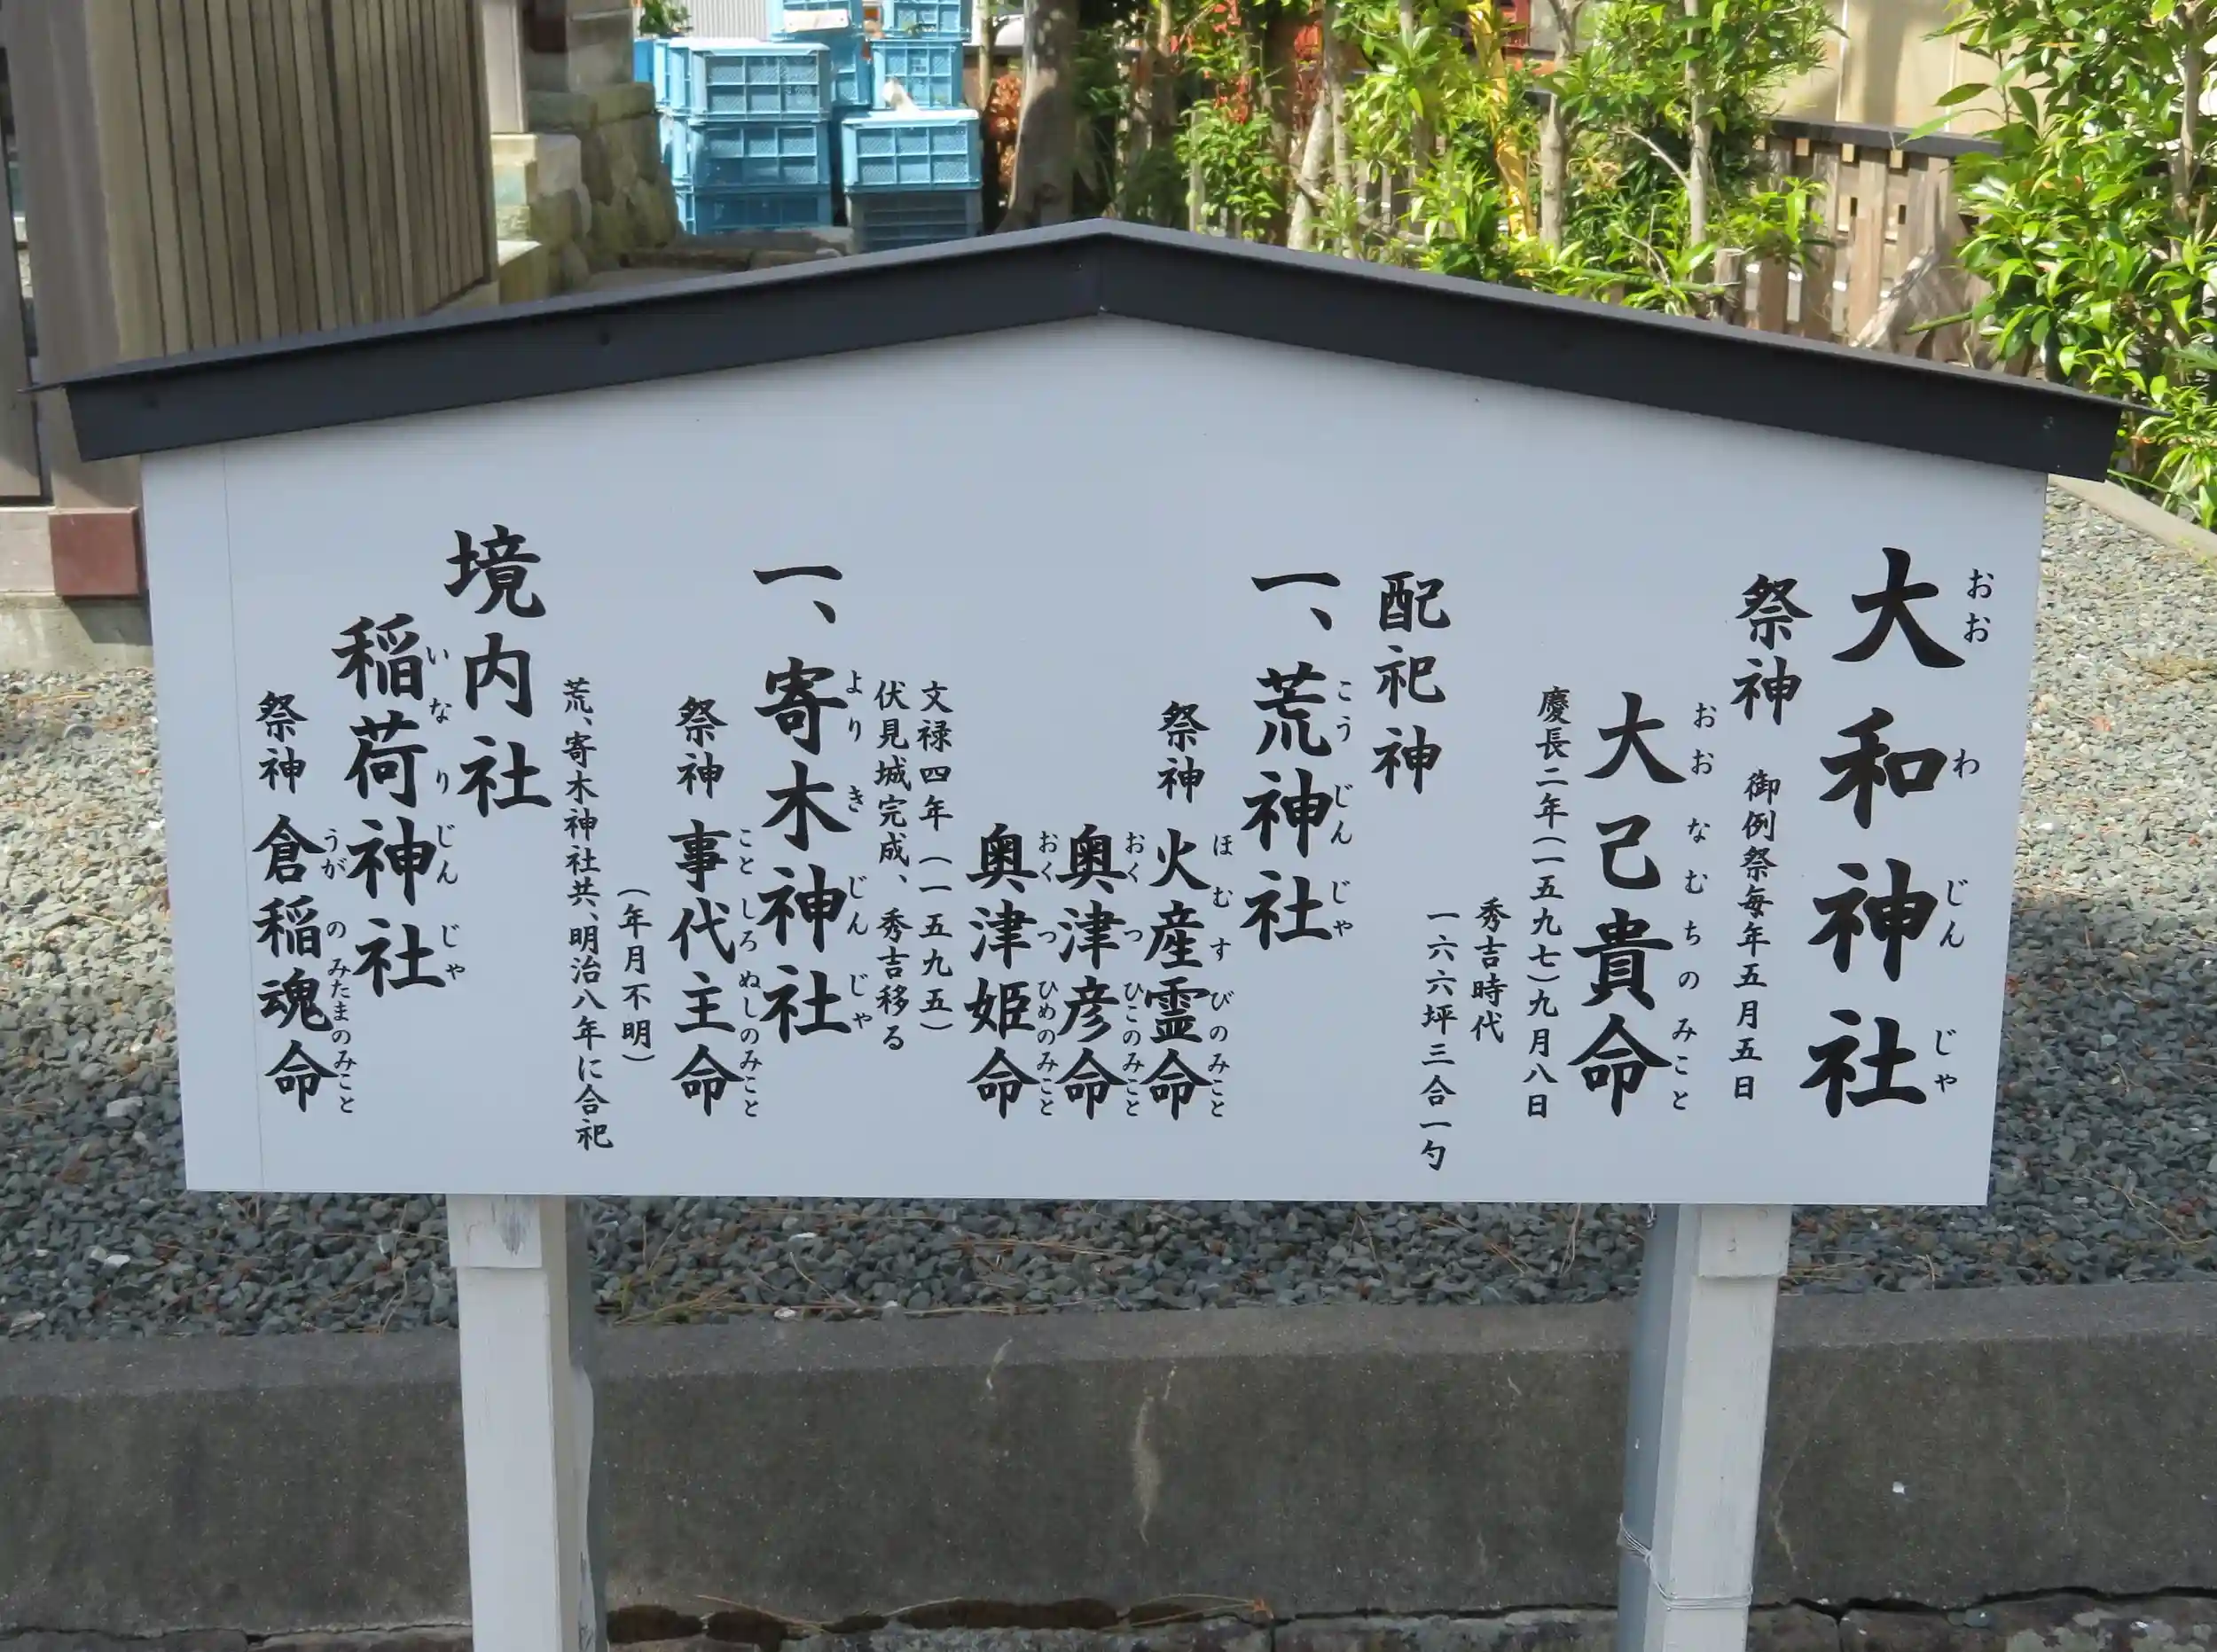 大和神社
おおわじんじゃ
祭神 御例祭毎年五月五日
大己貴命
おおなむちのみこと
慶長二年(一五九七)九月八日
秀吉時代
一六六坪三合一勺
配祀神
一、荒神社
こうじんじゃ
祭神 火産霊命
ほむすびのみこと
奥津彦命
おくつひこのみこと
奥津姫命
おくつひめのみこと
文禄四年(一五九五)
伏見城完成、秀吉移る
一、寄木神社
よりきじんじゃ
祭神 事代主命
ことしろぬしのみこと
(年月不明)
荒、寄木神社共、明治八年に合祀
境内社
稲荷神社
いなりじんじゃ
祭神 倉稲魂命
うがのみたまのみこと